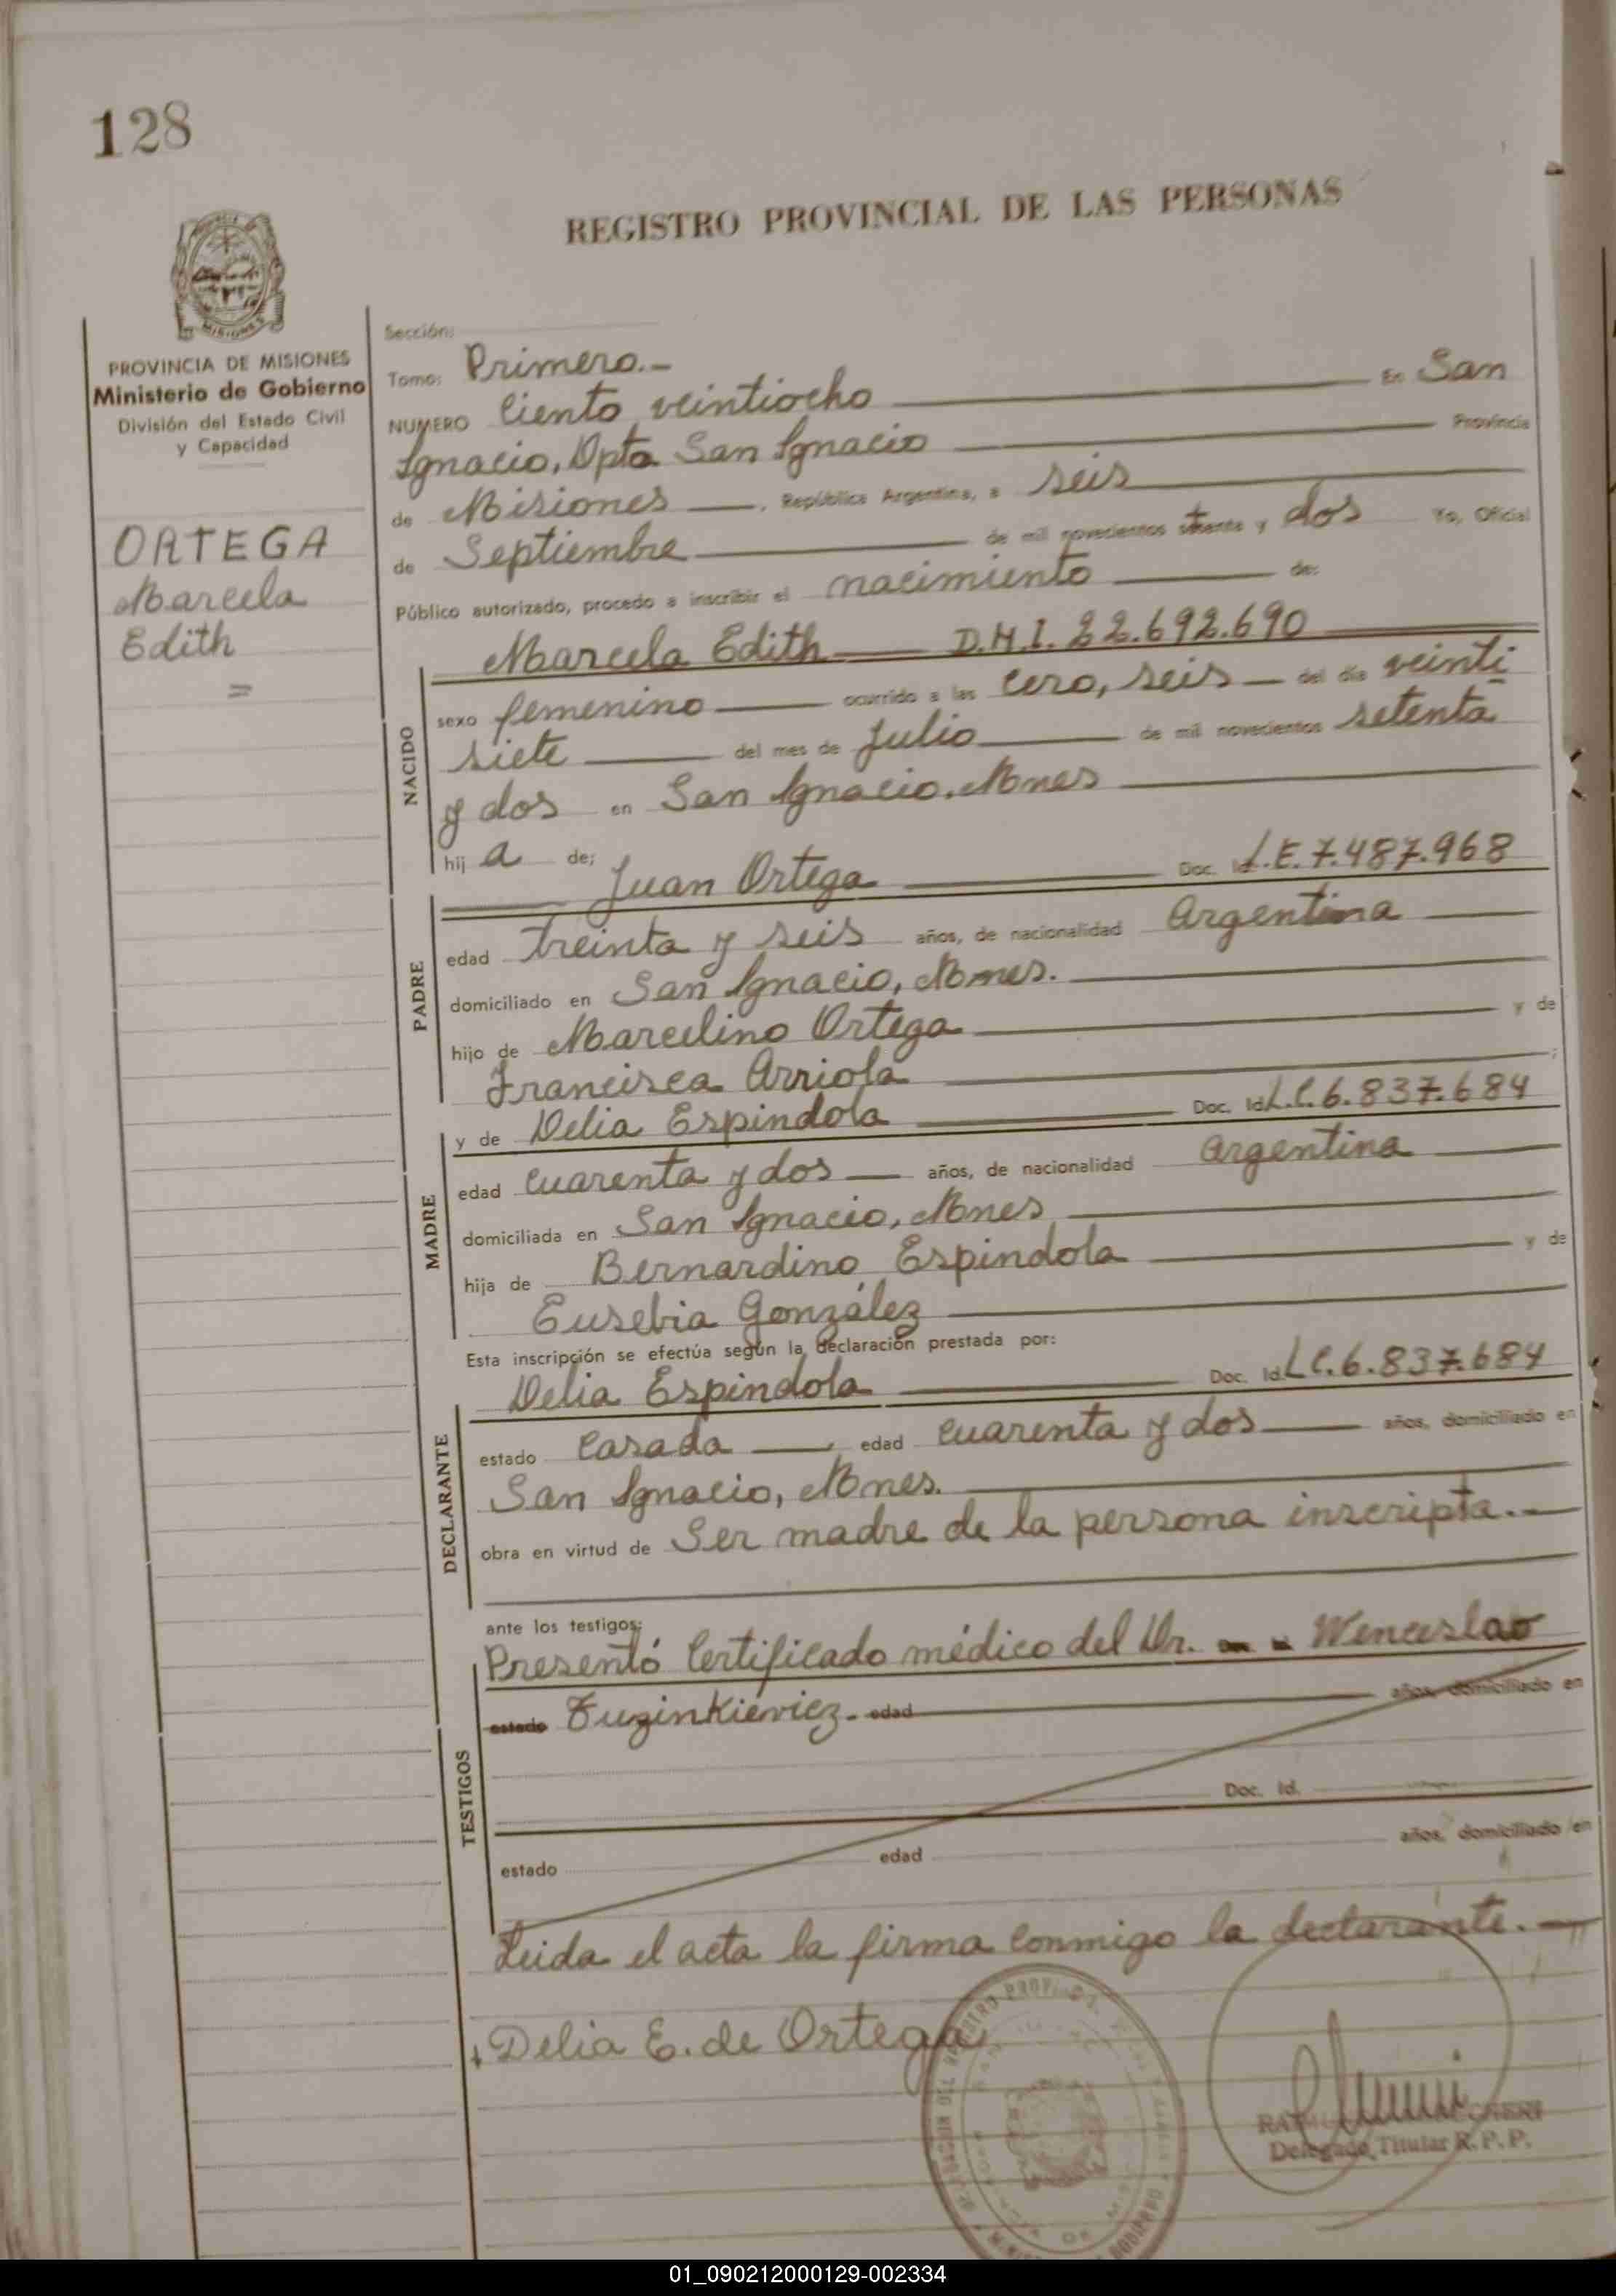 128
REGISTRO PROVINCIAL DE LAS PERSONAS
MISIONES
PROVINCIA DE MISIONES
Ministerio de Gobierno
División del Estado Civil
y Capacidad
ORTEGA
Marcela
Edith
=
Sección:
Tomo: Primero.-
NUMERO Ciento veintiocho En San
Ignacio, Dpto San Ignacio Provincia
de Misiones, República Argentina, a seis
de Septiembre de mil novecientos setenta y dos Yo, Oficial
Público autorizado, procedo a inscribir el nacimiento de:
NACIDO
Marcela Edith D.N.I. 22.692.690
sexo femenino ocurrido a las Cero, seis del día veinti
siete del mes de Julio de mil novecientos setenta
y dos en San Ignacio, Mnes
hij a de:
PADRE
Juan Ortega Doc. Id. L.E. 7.487.968
edad treinta y seis años, de nacionalidad Argentina
domiciliado en San Ignacio, Mnes.
hijo de Marcelino Ortega y de
Francisca Arriola;
MADRE
y de Delia Espindola Doc. Id. L.C. 6.837.684
edad Cuarenta y dos años, de nacionalidad Argentina
domiciliada en San Ignacio, Mnes
hija de Bernardino Espindola y de
Eusebia González
Esta inscripción se efectúa según la declaración prestada por:
DECLARANTE
Delia Espindola Doc. Id. L.C. 6.837.684
estado Casada, edad Cuarenta y dos años, domiciliado en
San Ignacio, Mnes.
obra en virtud de Ser madre de la persona inscripta.-
ante los testigos:
TESTIGOS
Presentó Certificado médico del Dr. Wenceslao
estado Tuzinkievicz. edad años, domiciliado en
Doc. Id.
estado edad años, domiciliado en
Leida el acta la firma conmigo la declarante.-
Delia E. de Ortega
Delegado Titular R. P. P.
01_090212000129-002334